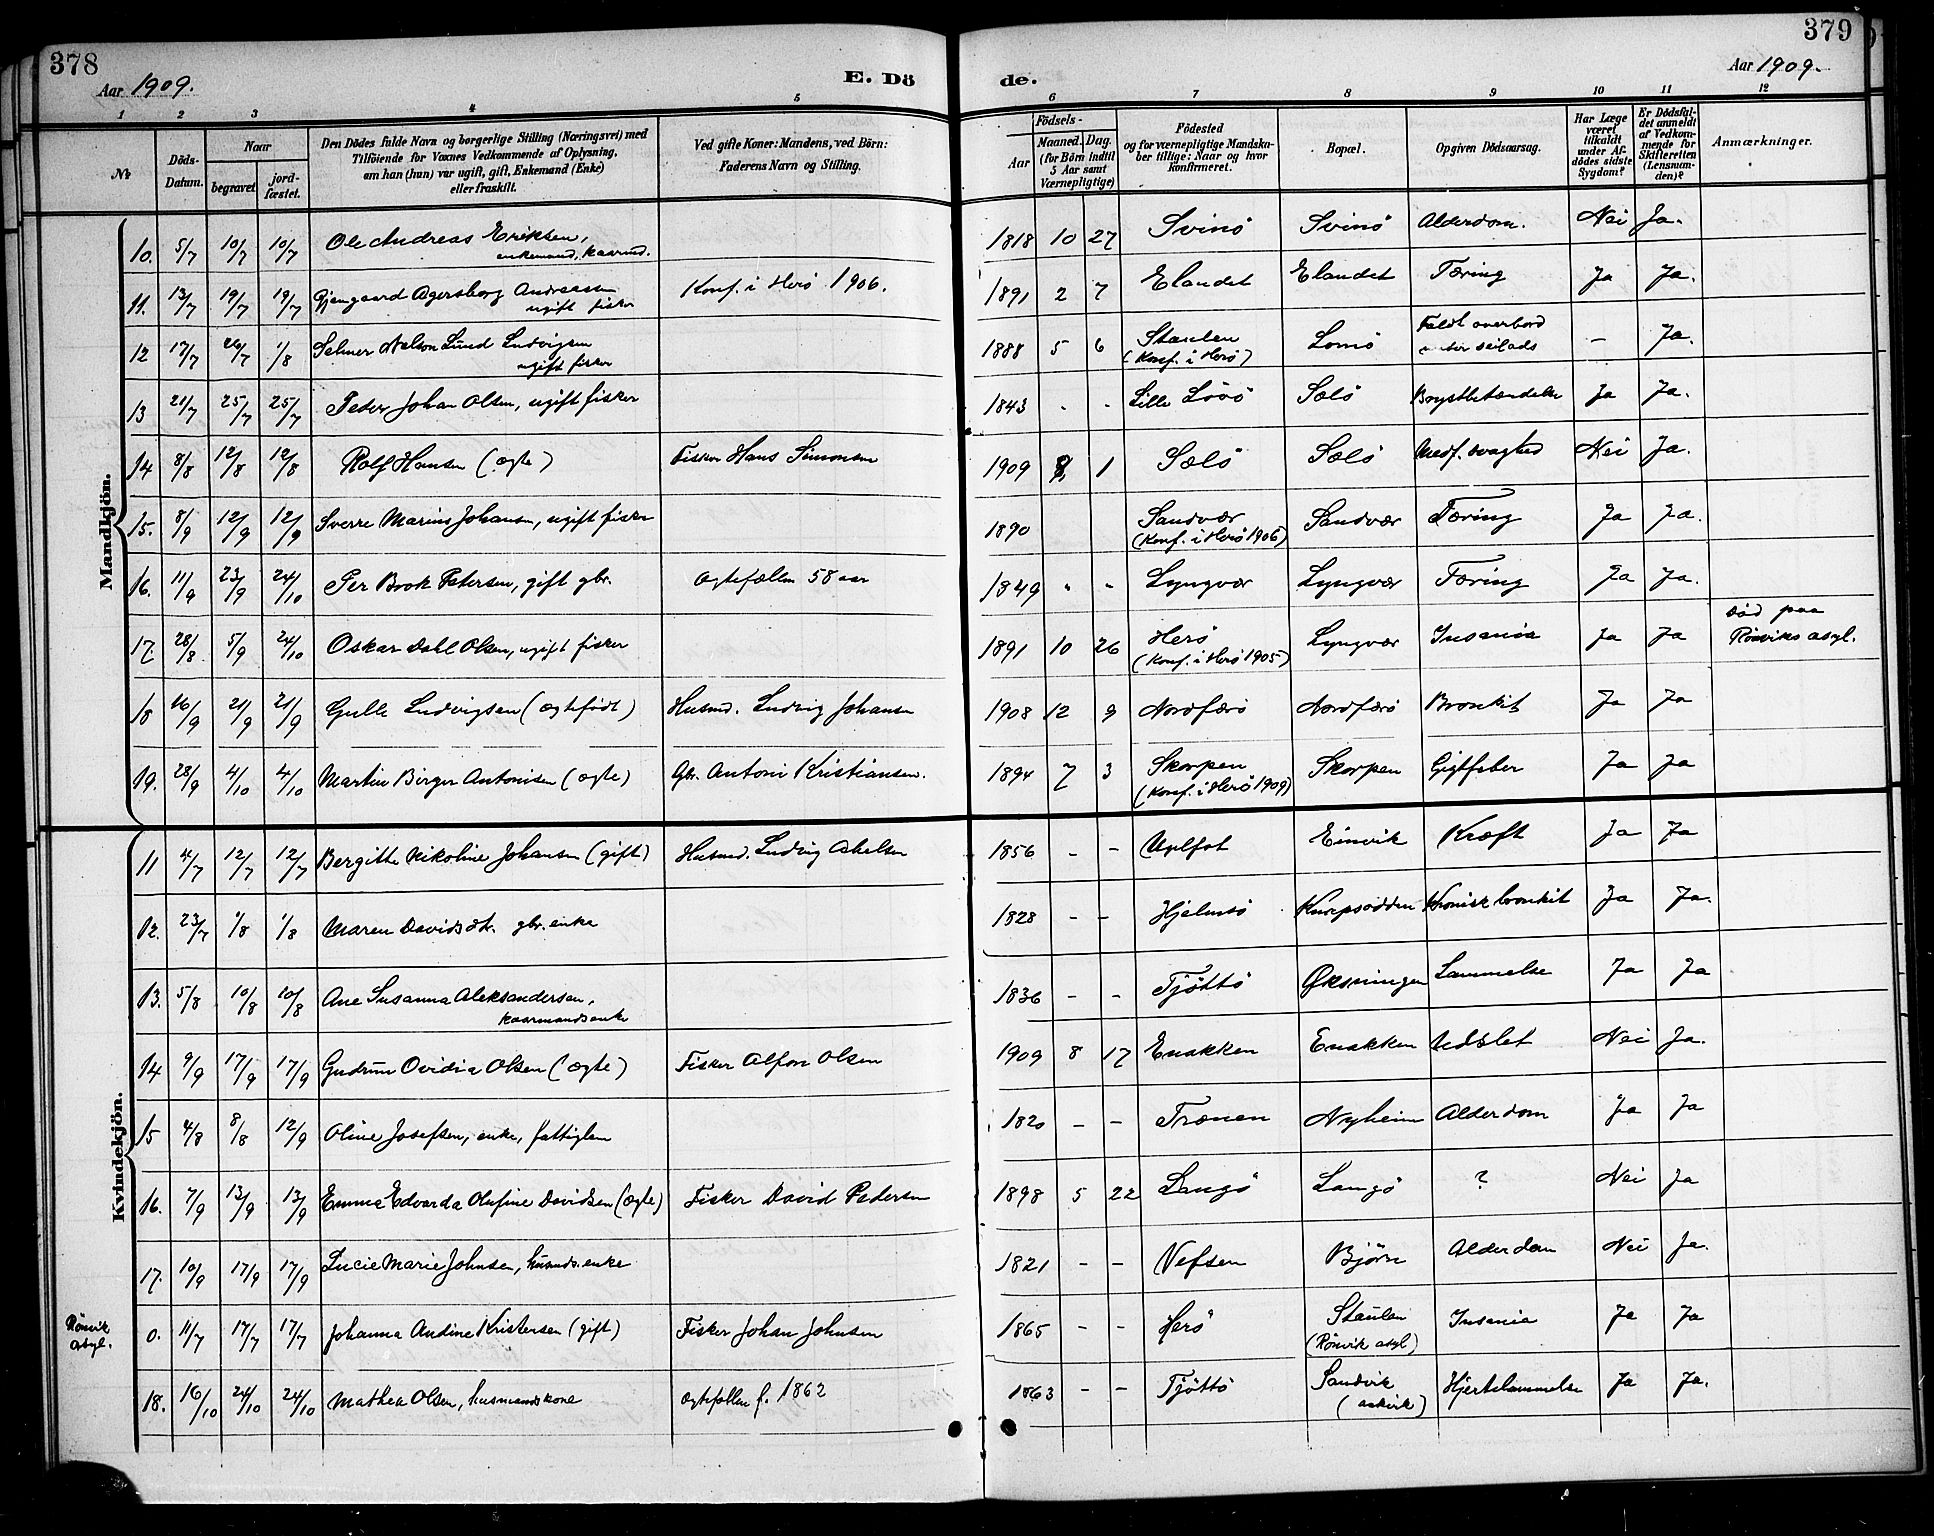 378
Aar 1909.
E. Dö
de.
379
Aar 1909.
1 2 3 4 5 6 7 8 9 10 11 12
No
Döds-Datum.
Naar
begravet.
jordfæstet.
Den Dödes fulde Navn og borgerlige Stilling (Næringsvei) med
Tilföiende for Voxnes Vedkommende af Oplysning,
om han (hun) var ugift, gift, Enkemand (Enke)
eller fraskilt.
Ved gifte Koner: Mandens, ved Börn:
Faderens Navn og Stilling.
Födsels-
Aar
Maaned. Dag.
(for Börn indtil
5 Aar samt
Værnepligtige)
Födested
og for værnepligtige Mandska-
ber tillige: Naar og hvor
konfirmeret.
Bopæl.
Opgiven Dödsaarsag.
Har Læge
været
tilkaldt
under Af-
dödes sidste
Sygdom?
Er Dödsfal-
det anmeldt
af Vedkom-
mende for
Skifteretten
(Lensman-
den)?
Anmærkninger.
Mandkjön.
10. 5/7 10/7 10/7 Ole Andreas Eriksen, 1818 10 27 Svinö Svinö Alderdom. Nei Ja.
enkemand, kaarmd.
11. 13/7 19/7 19/7 Gjengaard Agersborg Andreasen Konf. i Herö 1906. 1891 2 7 Elandet Elandet Tæring Ja Ja.
ugift fisker
12 17/7 26/7 1/8 Selmer Nelson Lund Ludvigsen 1888 5 6 Staulen Lomö Faldt overbord – Ja.
ugift fisker (Konf. i Herö) under seilads
13 21/7 25/7 25/7 Peder Johan Olsen, ugift fisker 1843 - - Lille Lövö Sælö Brystbetændelse Ja Ja.
14 8/8 12/8 12/8 Rolf Hansen (ægte) Fisker Hans Simonsen 1909 8 1 Sælö Sælö Medf. svaghed Nei Ja.
15. 8/9 12/9 12/9 Sverre Marius Johansen, ugift fisker 1890 Sandvær Sandvær Tæring Ja Ja.
(Konf. i Herö 1906)
16. 11/9 23/9 24/10 Per Brok Petersen, gift gbr. Ægtefællen 58 aar 1849 " " Lyngvær Lyngvær Tæring Ja Ja.
17. 28/8 5/9 24/10 Oskar Dahl Olsen, ugift fisker 1891 10 26 Herö Lyngvær Insania Ja Ja Död paa
(Konf. i Herö 1905) Rönviks asyl.
18 16/9 21/9 21/9 Gulle Ludvigsen (ægtefödt) Husmd. Ludvig Johansen 1908 12 9 Nordfærö Nordfærö Bronkit Ja Ja
19. 28/9 4/10 4/10 Martin Birger Antonisen (ægte) Gbr. Antoni Kristiansen. 1894 7 3 Skorpen Skorpen Gigtfeber Ja Ja
(Konf. i Herö 1909)
Kvindekjön.
11 4/7 12/7 12/7 Bergitte Nikoline Johansen (gift) Husmd. Ludvig Abelsen 1856 - - Vplfot Einvik Kræft Ja Ja
12. 23/7 1/8 1/8 Maren Davidsdtr. gbr. enke 1828 - - Hjelmsö Knæpsodden Kronisk bronkit Ja Ja.
13. 5/8 10/8 10/8 Ane Susanna Aleksandersen, 1836 - - Tjöttö Øksningen Lammelse Ja Ja
kaarmandsenke
14 9/9 17/9 17/9 Gudrun Ovidia Olsen (ægte) Fisker Alfon Olsen 1909 8 17 Enakken Enakken Udslet Nei Ja.
15 4/8 8/8 12/9 Oline Josefsen, enke, fattiglem 1820 - - Trænen Nyheim Alderdom Ja Ja
16. 7/9 13/9 13/9 Emma Edvarda Olufine Davidsen (ægte) Fisker David Pedersen 1898 5 22 Langö Langö ? Nei Ja
17. 10/9 17/9 17/9 Lucie Marie Johnsen, husmds. enke 1821 - - Vefsen Björn Alderdom Nei Ja.
Rönvik asyl. 0. 11/7 17/7 17/7 Johanna Andine Kristersen (gift) Fisker Johan Johnsen 1865 - - Herö Staulen Insania Ja Ja
(Rönvik asyl)
18. 16/10 24/10 24/10 Mathea Olsen, husmandskone Ægtefællen f. 1862 1863 - - Tjöttö Sandvik Hjertelammelse Ja Ja.